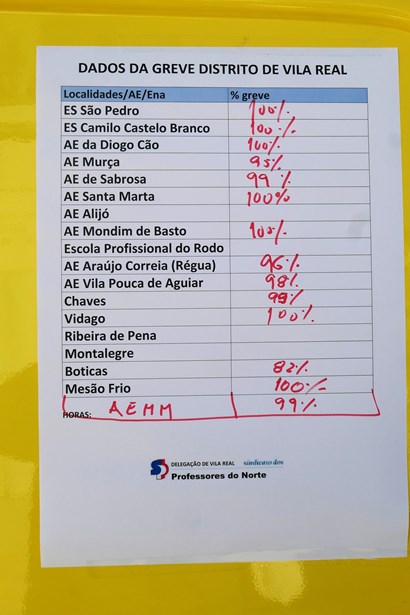 DADOS DA GREVE DISTRITO DE VILA REAL
Localidades/AE/Ena % greve
ES São Pedro 100%
ES Camilo Castelo Branco 100%
AE da Diogo Cão 100%
AE Murça 95%
AE de Sabrosa 99%
AE Santa Marta 100%
AE Alijó
AE Mondim de Basto 100%
Escola Profissional do Rodo
AE Araújo Correia (Régua) 96%
AE Vila Pouca de Aguiar 98%
Chaves 99%
Vidago 100%
Ribeira de Pena
Montalegre
Boticas 82%
Mesão Frio 100%
AEMM 99%
HORAS:
DELEGAÇÃO DE VILA REAL sindicato dos
Professores do Norte